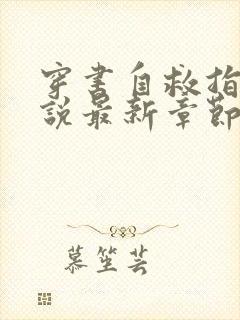 穿书自救指
說最新章節
慕笙芸